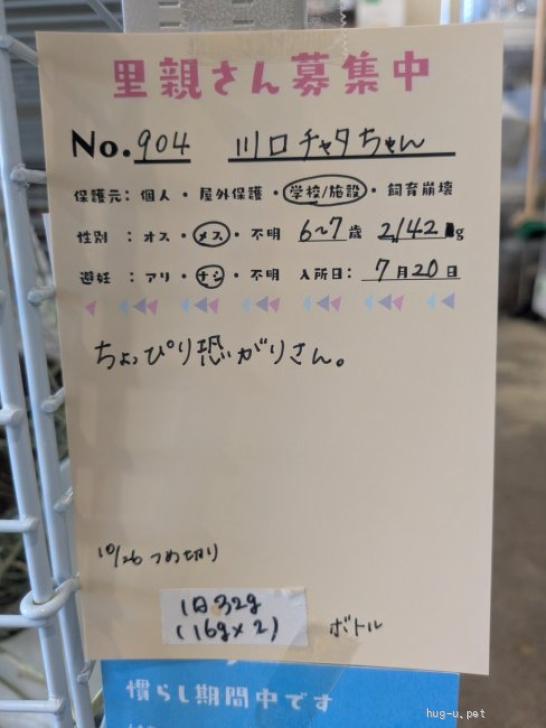 里親さん募集中
No. 904 川口チャタちゃん
保護元: 個人 ・ 屋外保護 ・ 学校/施設 ・ 飼育崩壊
性別 : オス ・ メス ・ 不明 6~7歳 2,142g
避妊 : アリ ・ ナシ ・ 不明 入所日: 7月20日
ちょっぴり恐がりさん。
10/26 つめ切り
1日32g
(16g×2)
ボトル
慣らし期間中です
hug-u.pet